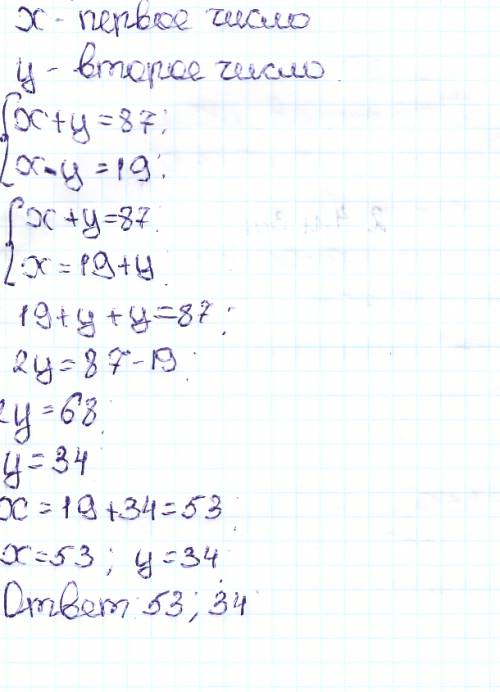 x - первое число
y - второе число.
x+y=87;
x-y=19;
x+y=87.
x=19+y.
19+y+y=87;
2y=87-19;
2y=68.
y=34
x=19+34=53;
x=53; y=34
Ответ: 53; 34